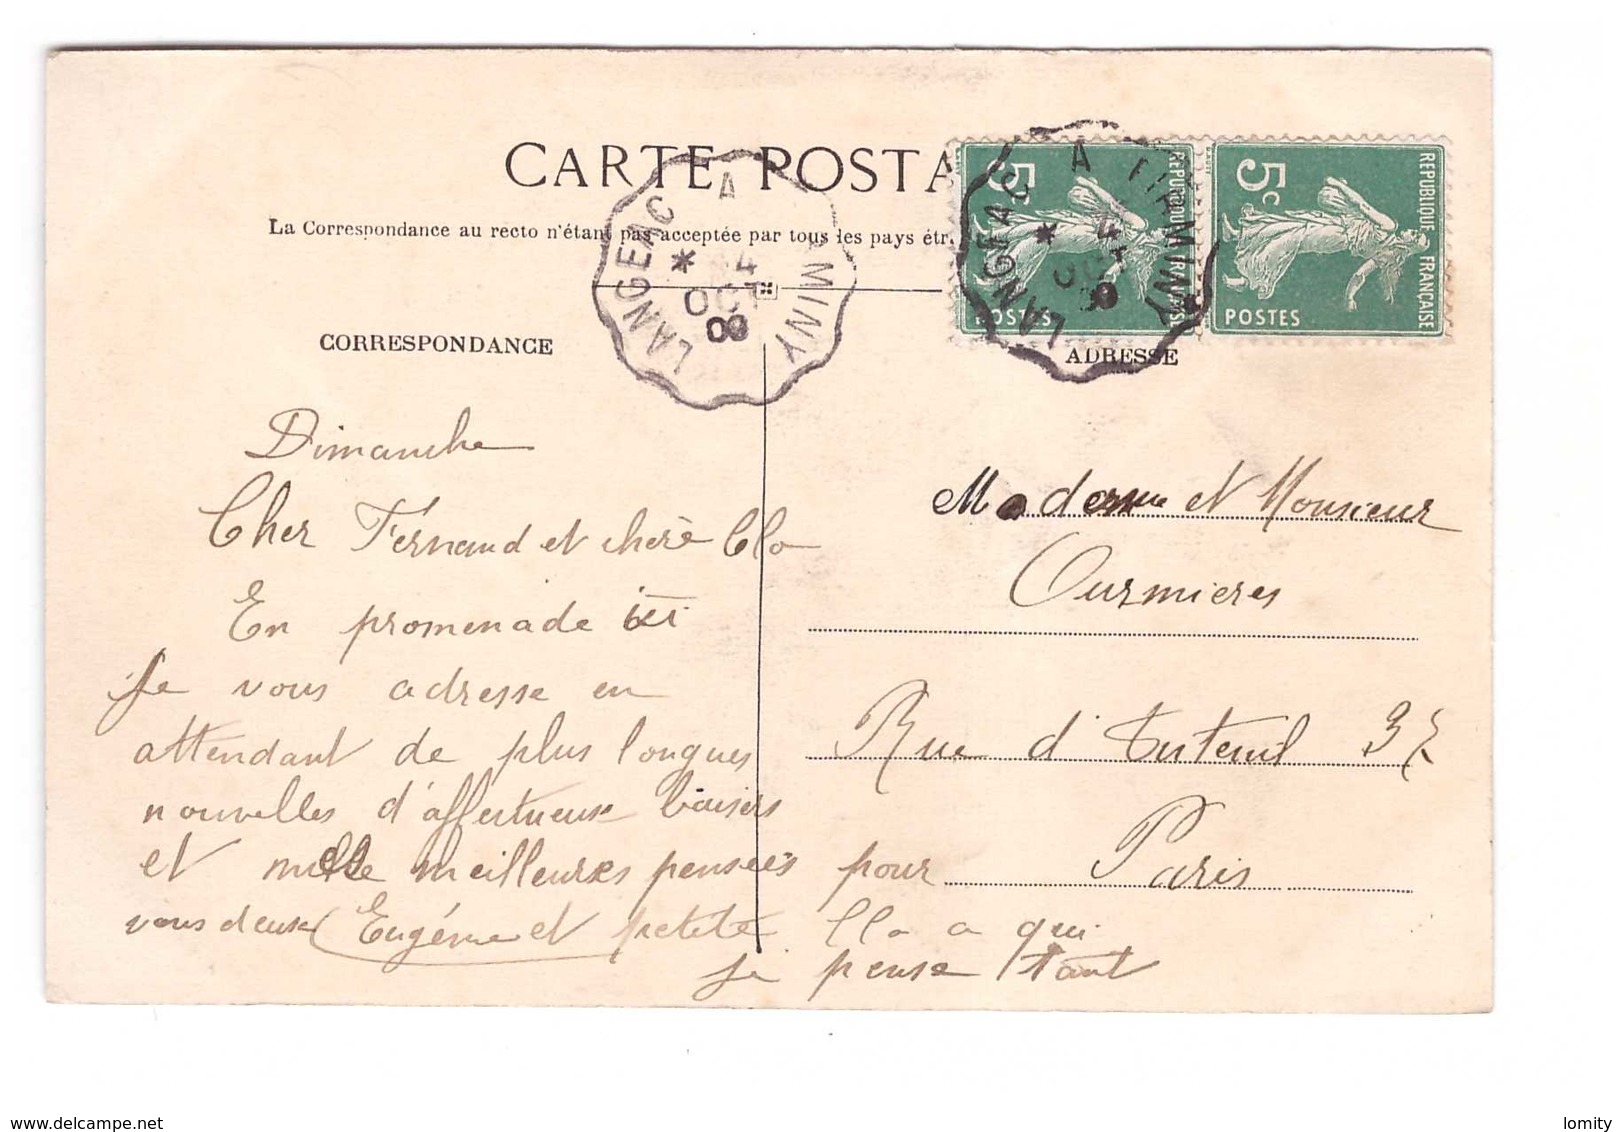 CARTE POSTA
La Correspondance au recto n'étant pas acceptée par tous les pays êtr
LANGEAC A MINY
* OCT 4
08
5c
RÉPUBLIQUE FRANÇAISE
POSTES
5c
RÉPUBLIQUE FRANÇAISE
POSTES
LANGEAC A MINY
CORRESPONDANCE
ADRESSE
Dimanche
Cher Férnaud et chère Clo
En promenade ici
Je vous adresse en
attendant de plus longues
nouvelles d'affectueux baisers
et mille meilleures pensées pour
vous deux Eugénie et petite Clo a qui
je pense tant
Madame et Monsieur
Ourmieres
Rue d'Auteuil 37
Paris
www.delcampe.net
lomity